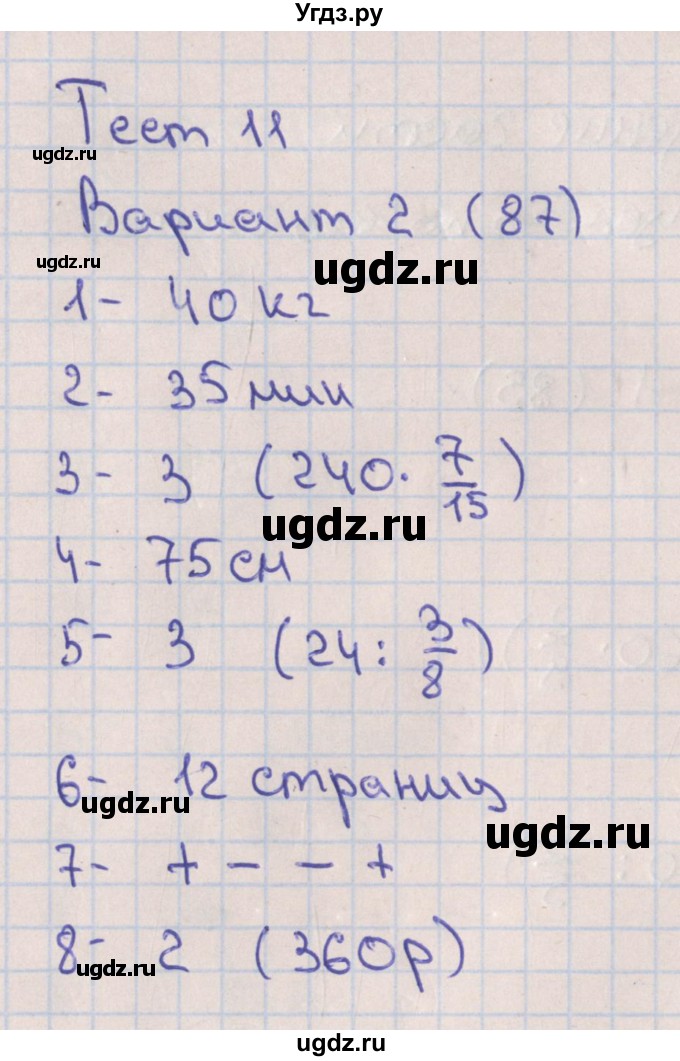 Угдз.ру
Тест 11
ugdz.ru
Вариант 2 (87)
ugdz.ru
ugdz.ru
1- 40 кг
2- 35 мин
3- 3 (240· 7/15)
ugdz.ru
4- 75 см
5- 3 (24 : 3/8)
6- 12 страниц
ugdz.ru
ugdz.ru
7- + - - +
8- 2 (360р)
ugdz.ru
ugdz.ru